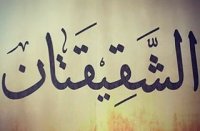 الشَّقِيقَتَان